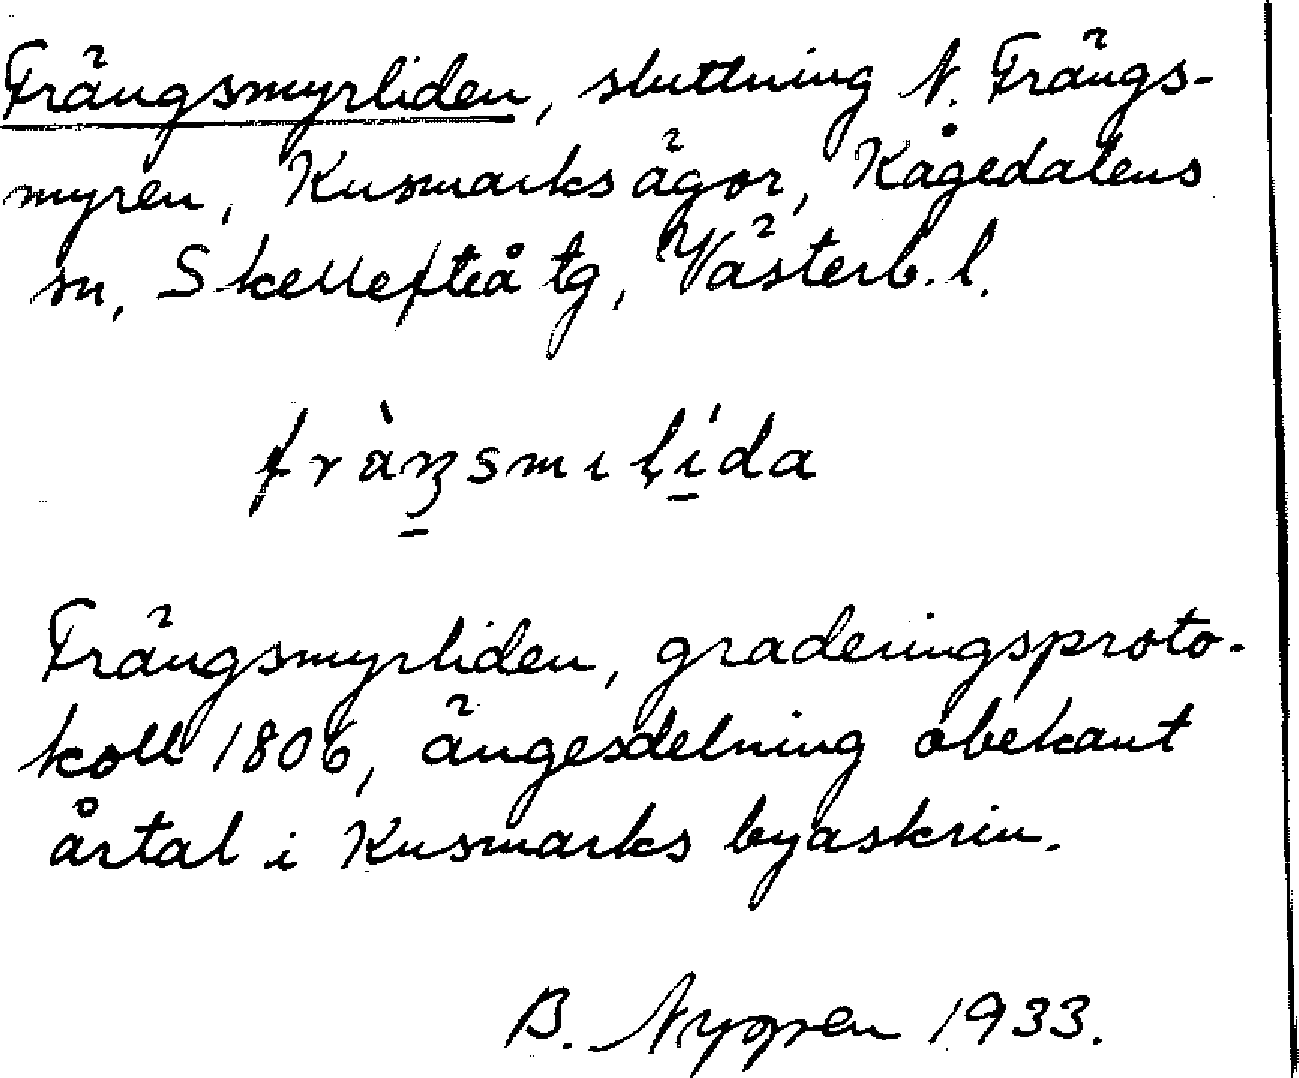 Frängsmyrliden, sluttning N. Frängs-
myren, Kusmarks ägor, Kågedalens
sn, Skellefteå tg, Västerb. l.
Frängsmyrliden, graderingsproto-
koll 1806, ängesdelning obekant
årtal i Kusmarks byaskrin.
B. Nygren 1933.